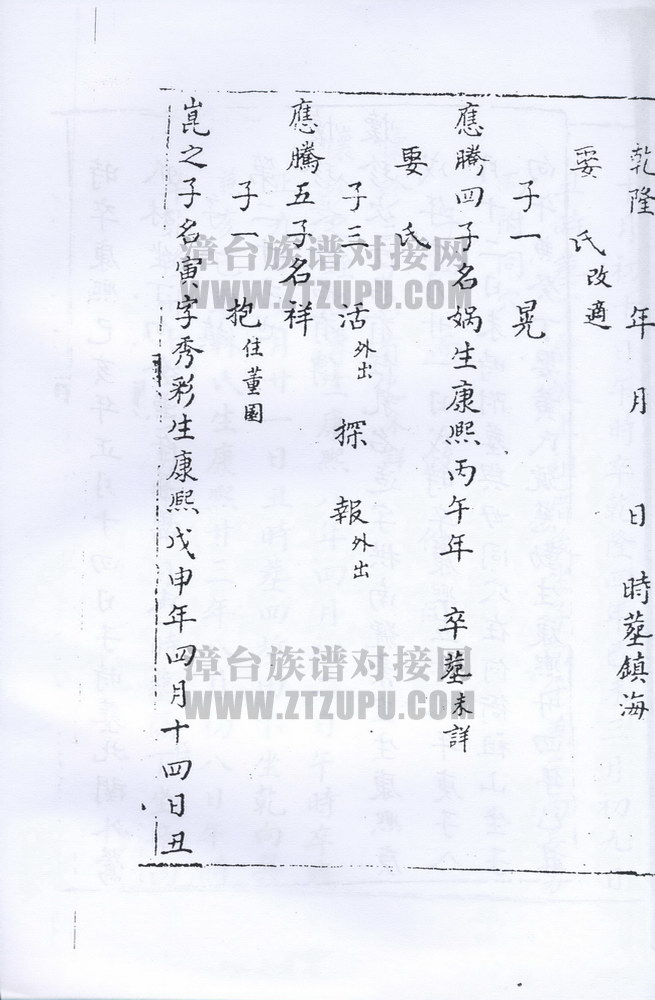 乾隆 年 月 日 時塟鎮海
娶 氏改適
子一 晃
應騰四子名媧生康熙丙午年 卒塟未詳
娶 氏
子三 活外出 探 報外出
應騰五子名祥
子一 抱住董園
崑之子名寅字秀彩生康熙戊申年四月十四日丑
漳台族谱对接网
WWW.ZTZUPU.COM
漳台族谱对接网
WWW.ZTZUPU.COM